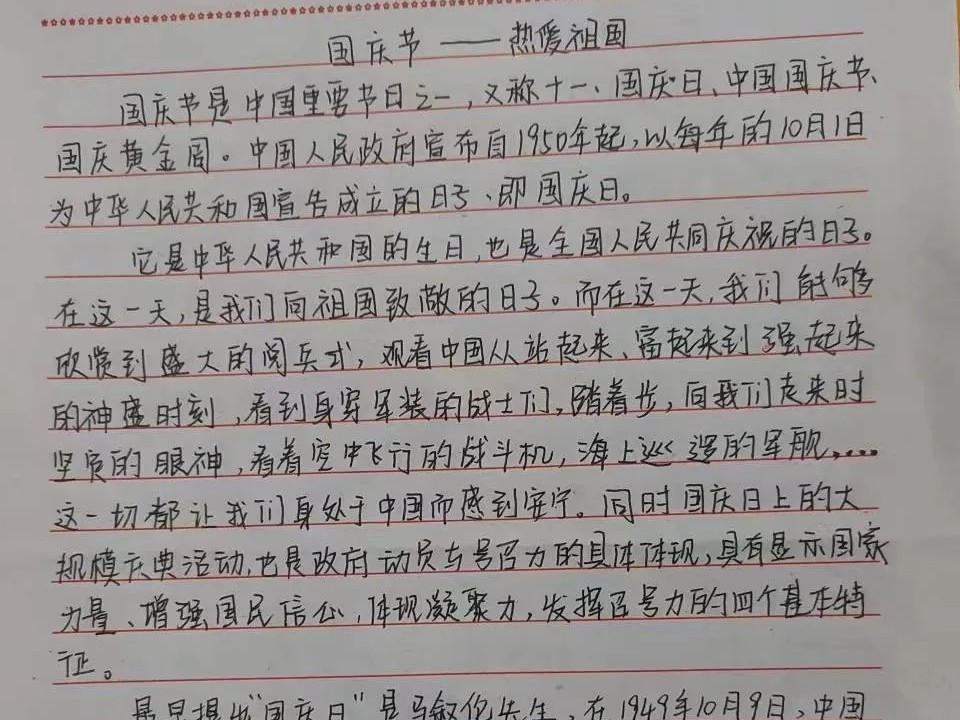 国庆节——热爱祖国
国庆节是中国重要节日之一，又称十一、国庆日、中国国庆节、
国庆黄金周。中国人民政府宣布自1950年起，以每年的10月1日
为中华人民共和国宣告成立的日子、即国庆日。
它是中华人民共和国的生日，也是全国人民共同庆祝的日子。
在这一天，是我们向祖国致敬的日子。而在这一天，我们能够
欣赏到盛大的阅兵式，观看中国从站起来、富起来到强起来
的神盛时刻，看到身穿军装的战士们，踏着步，向我们走来时
坚定的眼神，看着空中飞行的战斗机，海上巡逻的军舰，....
这一切都让我们身处于中国而感到安宁。同时国庆日上的大
规模庆典活动，也是政府动员与号召力的具体体现，具有显示国家
力量、增强国民信心，体现凝聚力，发挥召号力的四个基本特
征。
最早提出“国庆日”是马叙伦先生，在1949年10月9日，中国